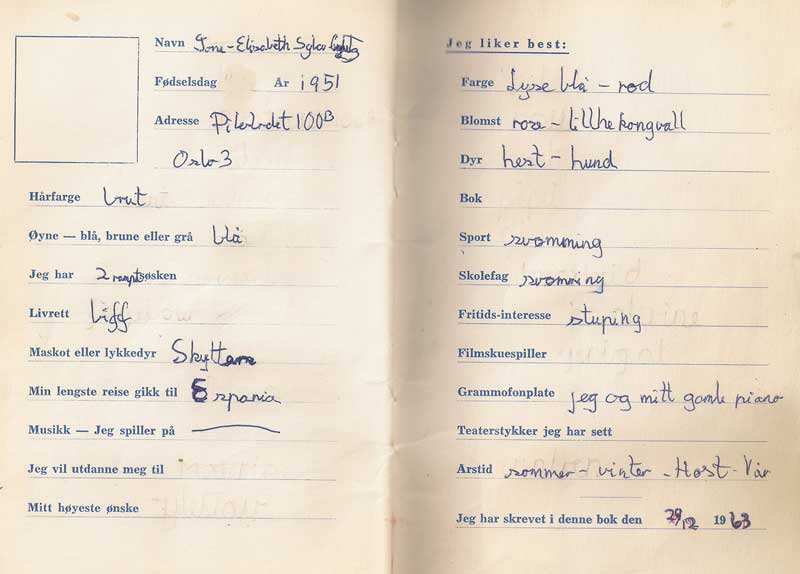 Navn Tone-Elisabeth
Fødselsdag År 1951
Adresse 100B
Oslo 3
Hårfarge brut
Øyne — blå, brune eller grå blå
Jeg har 2 søsken
Livrett biff
Maskot eller lykkedyr Skyttern
Min lengste reise gikk til Espania
Musikk — Jeg spiller på
Jeg vil utdanne meg til
Mitt høyeste ønske
Jeg liker best:
Farge Lyse blå - rød
Blomst rose - lillhe kongvall
Dyr hest - hund
Bok
Sport svømming
Skolefag svømming
Fritids-interesse stuping
Filmskuespiller
Grammofonplate jeg og mitt gamle piano
Teaterstykker jeg har sett
Årstid sommer - vinter - Høst - Vår
Jeg har skrevet i denne bok den 29/12 1963